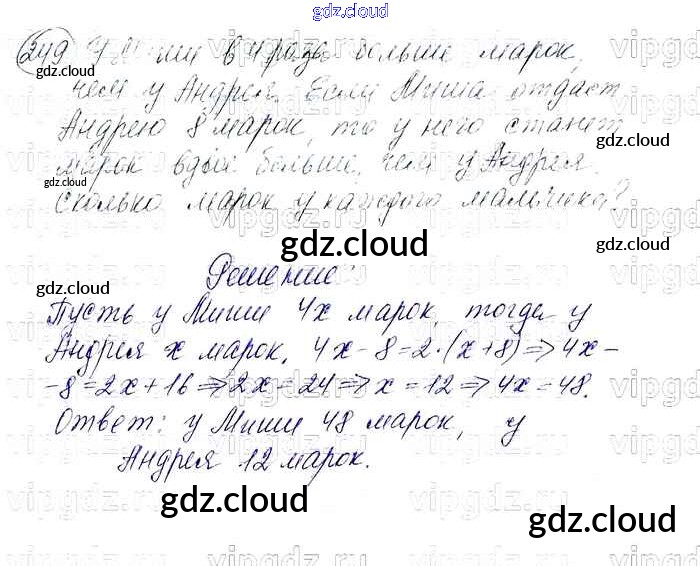 gdz.cloud
249 У Миши в 4 раза больше марок,
чем у Андрея. Если Миша отдаст
Андрею 8 марок, то у него станет
марок вдвое больше, чем у Андрея.
Сколько марок у каждого мальчика?
gdz.cloud
Решение:
Пусть у Миши 4x марок, тогда у
Андрея x марок. 4x-8=2·(x+8)=>4x-
-8=2x+16=>2x=24=>x=12=>4x=48.
Ответ: у Миши 48 марок, у
Андрея 12 марок.
gdz.cloud
gdz.cloud
gdz.cloud